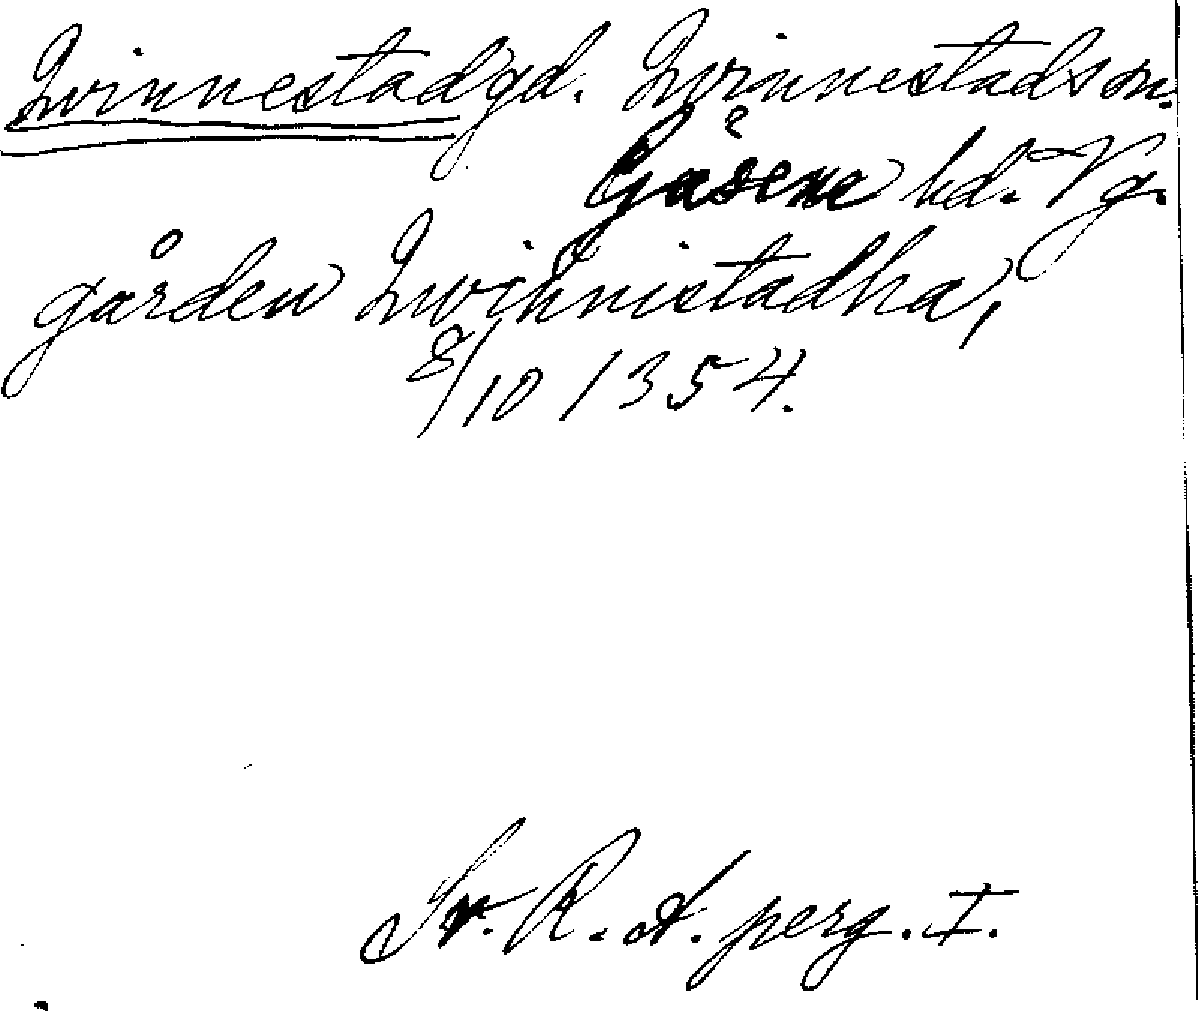 Qvinnestad gd. Qvinnestads sn.
Gäsene hd. Vg.
gården Qvinnistadha,
8/10 1354.
Sv. R. A. perg. I.